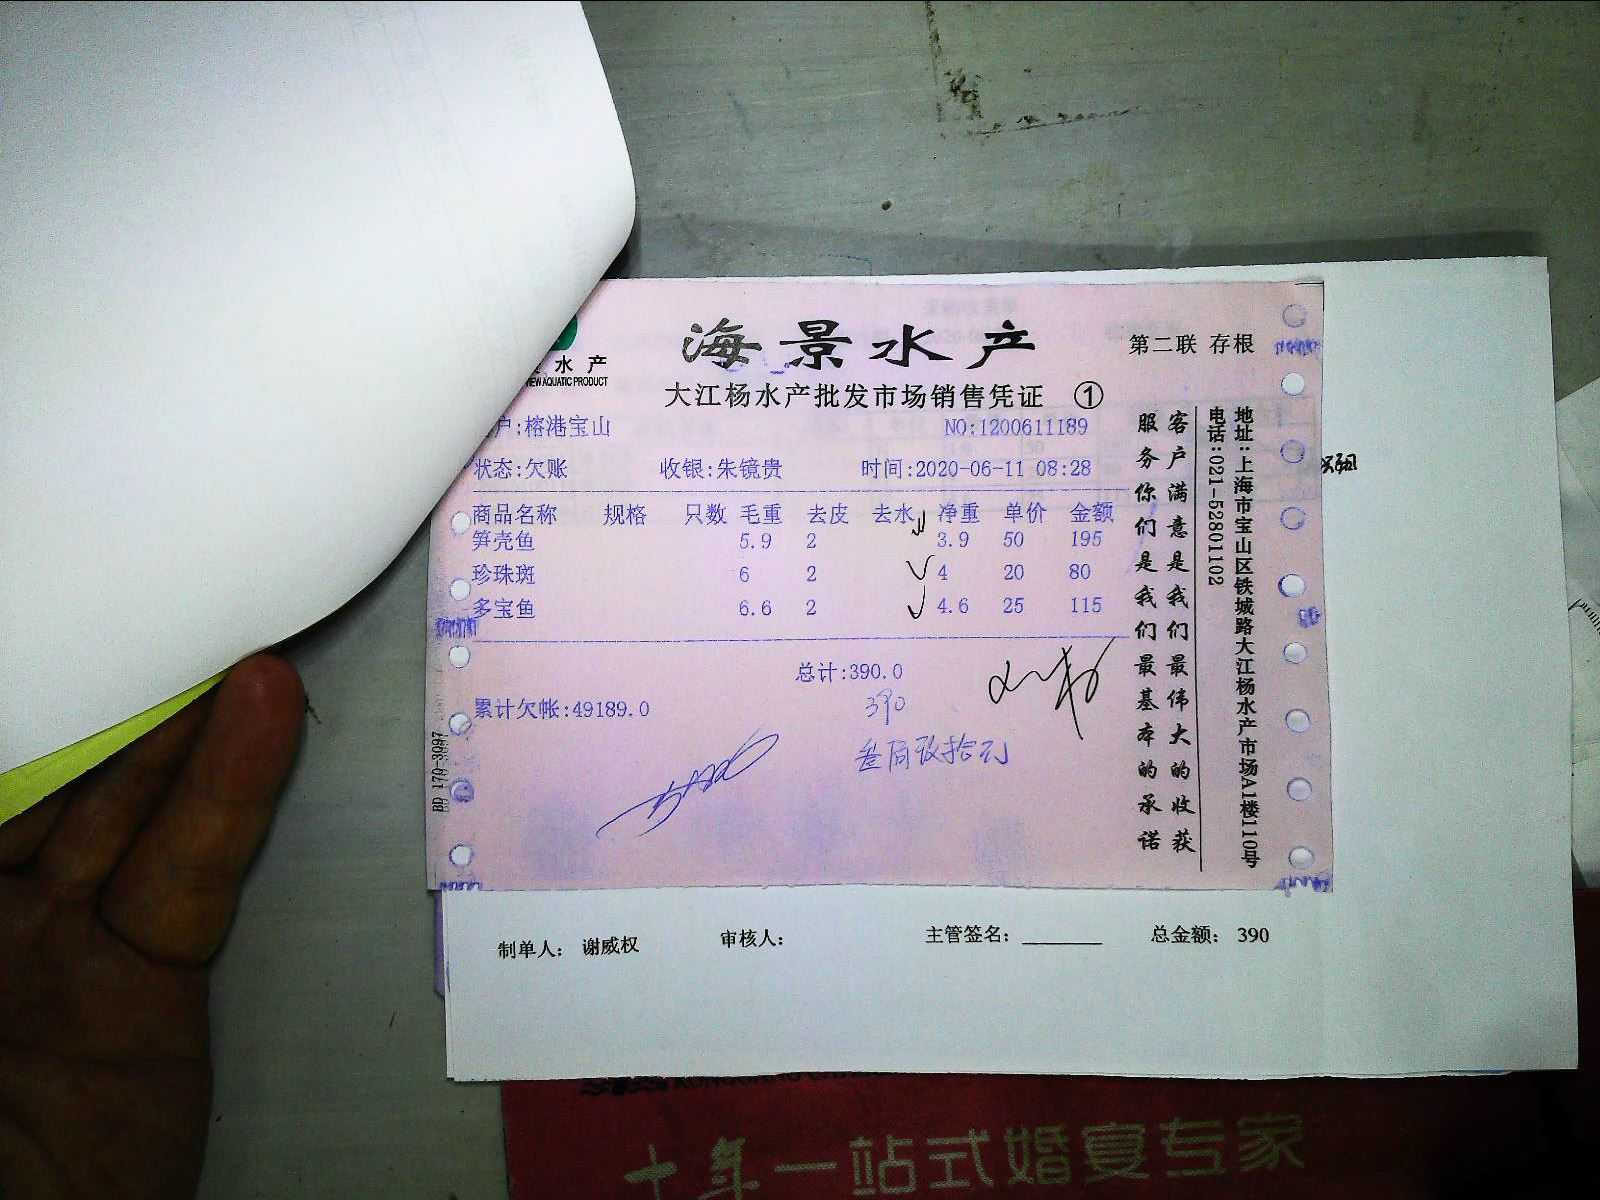 海景水产
第二联 存根
水产
VIEW AQUATIC PRODUCT
大江杨水产批发市场销售凭证 ①
户:榕港宝山
NO:1200611189
状态:欠账 收银:朱镜贵 时间:2020-06-11 08:28
商品名称 规格 只数 毛重 去皮 去水 净重 单价 金额
笋壳鱼 5.9 2 3.9 50 195
珍珠斑 6 2 4 20 80
多宝鱼 6.6 2 4.6 25 115
总计:390.0
累计欠帐:49189.0
390
叁佰玖拾元
客户满意是我们最伟大的收获
服务你们是我们最基本的承诺
地址:上海市宝山区铁城路大江杨水产市场A1楼110号
电话:021-52801102
BD 170-3997
制单人: 谢威权 审核人: 主管签名: 总金额: 390
十年一站式婚宴专家